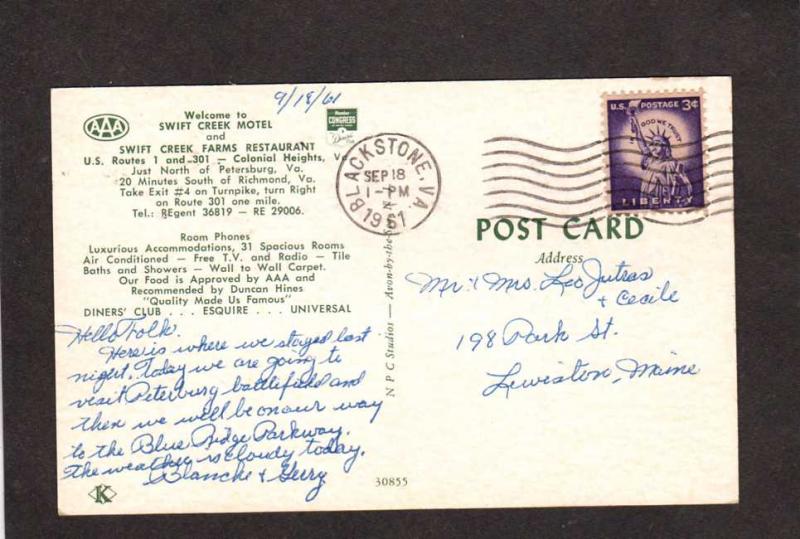 9/18/61
AAA
Welcome to
SWIFT CREEK MOTEL
and
SWIFT CREEK FARMS RESTAURANT
U.S. Routes 1 and 301 — Colonial Heights, Va.
Just North of Petersburg, Va.
20 Minutes South of Richmond, Va.
Take Exit #4 on Turnpike, turn Right
on Route 301 one mile.
Tel.: REgent 36819 - RE 29006.
Member
CONGRESS
Room Phones
Luxurious Accommodations, 31 Spacious Rooms
Air Conditioned — Free T.V. and Radio — Tile
Baths and Showers — Wall to Wall Carpet.
Our Food is Approved by AAA and
Recommended by Duncan Hines
"Quality Made Us Famous"
DINERS' CLUB . . . ESQUIRE . . . UNIVERSAL
Hello Folk.
Here is where we stayed last
night. Today we are going to
visit Peterburg battlefield and
then we will be on our way
to the Blue Ridge Parkway.
The weather is cloudy today.
Blanche & Gerry
K
N P C Studios — Avon-by-the-Sea, N.
30855
BLACKSTONE, VA.
SEP 18
1-PM
1961
U.S. POSTAGE 3¢
IN GOD WE TRUST
LIBERTY
POST CARD
Address
Mr. & Mrs. Leo Jutras
+ Cecile
198 Park St.
Lewiston, Maine